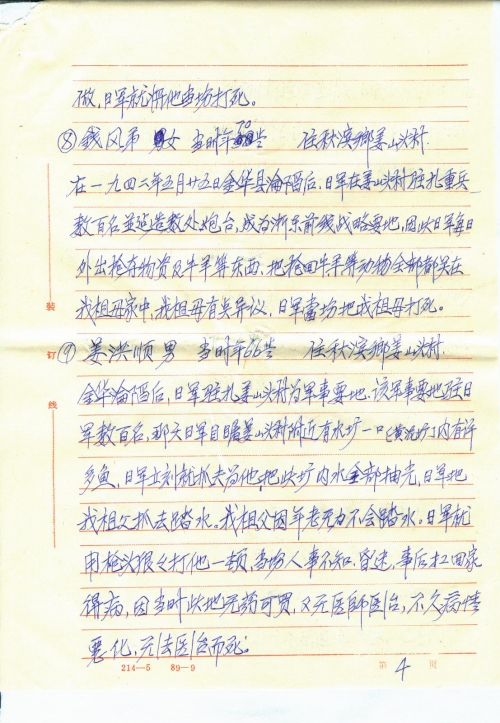 做，日军就将他当场打死。
⑧ 钱凤弟 女 当时年70岁 住秋滨鄉姜山头村
在一九四二年五月廿五日金华县淪陷后，日军在姜山头村驻扎重兵
数百名並建造数处炮台，成为浙东前线战略要地，因此日军每日
外出抢夺物资及牛羊等东西、把抢回牛羊等动物全部都关在
我祖母家中，我祖母有异议，日军當场把我祖母打死。
⑨ 姜洪顺 男 当时年66岁 住秋滨鄉姜山头村
金华淪陷后，日军驻扎姜山头村为军事要地．该军事要地驻日
军数百名，那天日军目瞻姜山头村附近有水圢一口 内有许
多鱼，日军立刻就抓去为他，把此圢内水全部抽光，日军把
我祖父抓去踏水。我祖父因年老无力不会踏水。日军就
用枪头狠々打他一顿，当场人事不知．昏迷，事后扛回家
得病，因当时此地无药可買，又无医師医治，不久病情
悪化，无法医治而死．
装
订
线
214—5 89—9
第 4 页